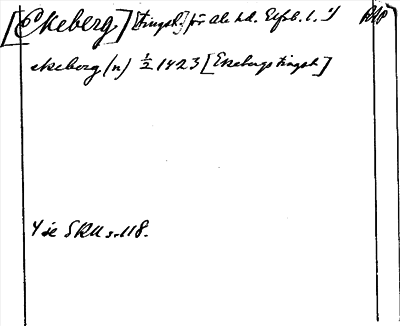 [Ekeberg] [Tingst.] för Ale hd. Elfsb. l. 1) RAP
ekeberg (n) ½ 1423 [Ekebergs tingst]
1 se SRU s. 118.